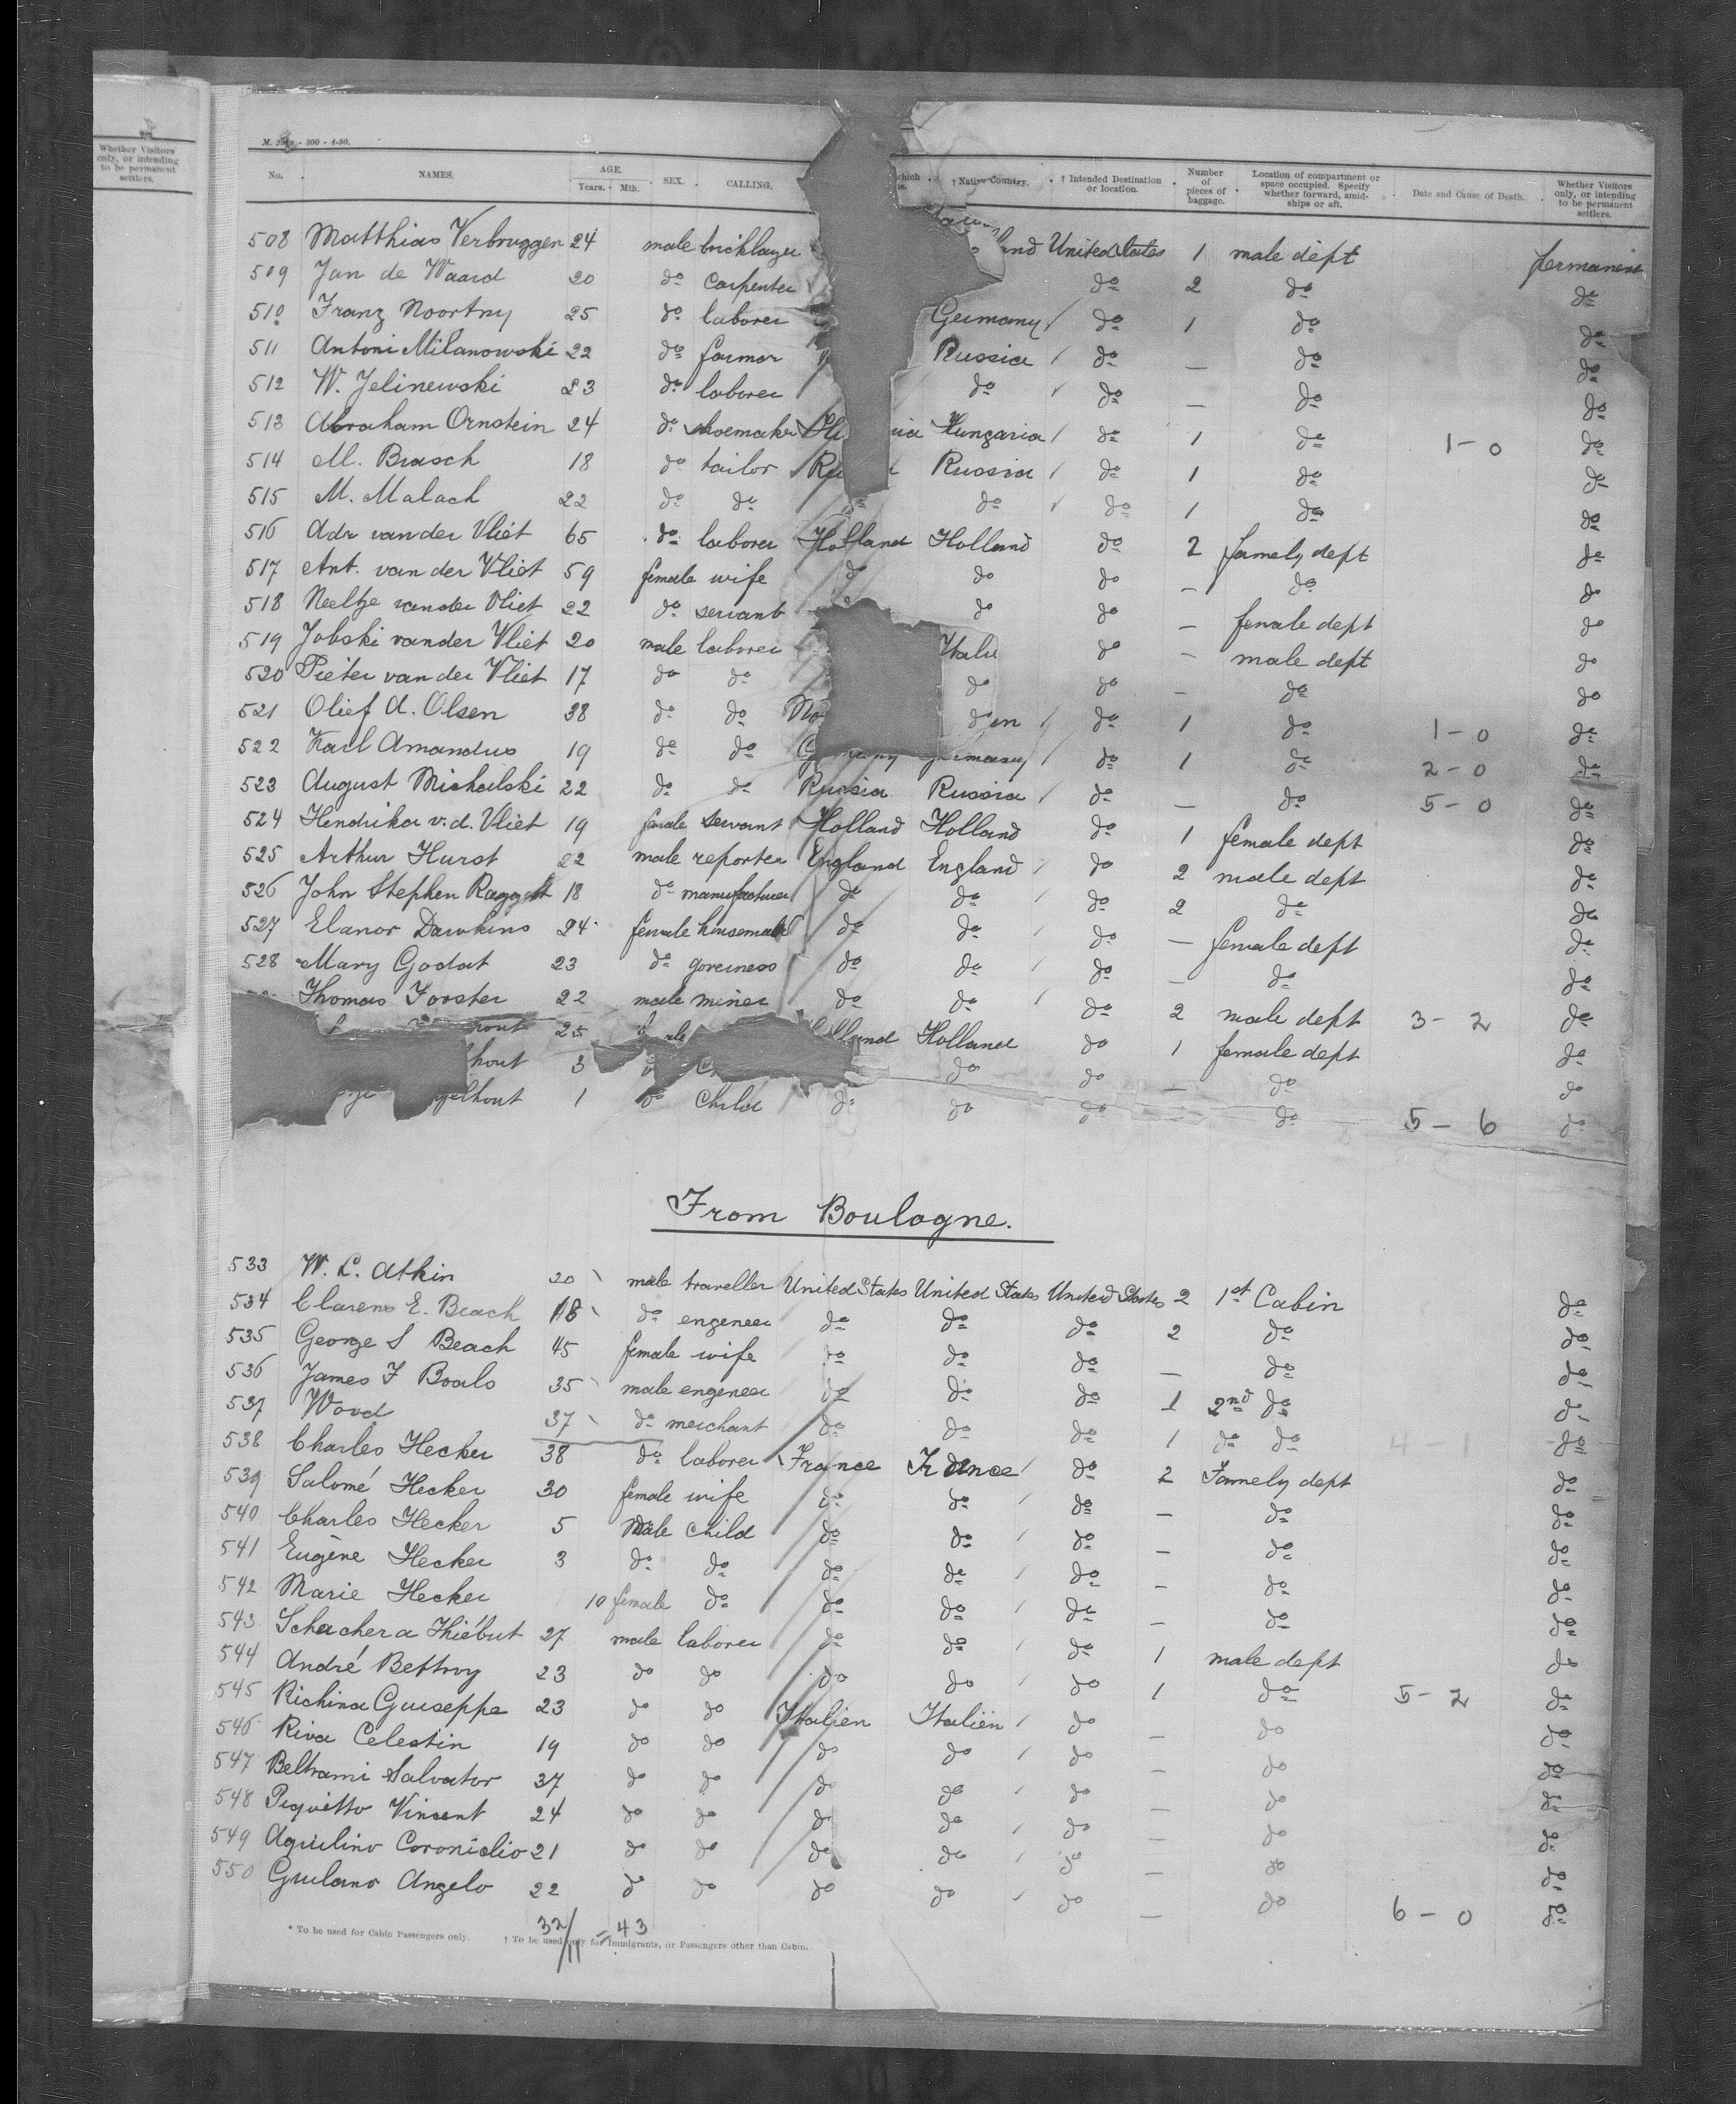 Whether Visitors only, or intending to be permanent settlers.
No. NAMES. AGE. Years. Mth. SEX. CALLING. which † Native Country. † Intended Destination or location. Number of pieces of baggage. Location of compartment or space occupied. Specify whether forward, amidships or aft. Date and Cause of Death. Whether Visitors only, or intending to be permanent settlers.
508 Matthias Verbruggen 24 male bricklayer land United States 1 male dept permanent
509 Jan de Waard 20 do carpenter do 2 do do
510 Franz Noortny 25 do laborer Germany do 1 do do
511 Antoni Milanowski 22 do farmer Russia do — do do
512 W. Jelinewski 23 do laborer do do — do do
513 Abraham Ornstein 24 do shoemaker Hungaria do 1 do 1-0 do
514 M. Brasch 18 do tailor Russia do 1 do do
515 M. Malach 22 do do do do do 1 do do
516 Adr van der Vliet 65 do laborer Holland Holland do 2 famely dept do
517 Ant. van der Vliet 59 female wife do do do — do do
518 Neeltje van der Vliet 22 do servant do do — female dept do
519 Jobski vander Vliet 20 male laborer do — male dept do
520 Pieter van der Vliet 17 do do do do — do do
521 Olief A. Olsen 38 do do do 1 do 1-0 do
522 Karl Amandus 19 do do Germany Germany do 1 do 2-0 do
523 August Michalski 22 do do Russia Russia do — do 5-0 do
524 Hendrika v.d. Vliet 19 female servant Holland Holland do 1 female dept do
525 Arthur Hurst 22 male reporter England England do 2 male dept do
526 John Stephen Raggett 18 do manufacturer do do do 2 do do
527 Elanor Dawkins 24 female housemaid do do do — female dept do
528 Mary Godat 23 do governess do do do — do do
Thomas Forster 22 male miner do do do 2 male dept 3-2 do
hout 25 Holland Holland do 1 female dept do
hout 3 do do — do do
gelhout 1 do child do do do — do 5-6 do
From Boulogne.
533 W. L. Atkin 20 male traveller United States United States United States 2 1st Cabin do
534 Clarens E. Beach 18 do engeneer do do do 2 do do
535 George S Beach 45 female wife do do do — do do
536 James F Boals 35 male engeneer do do do 1 2nd do do
537 Wood 37 do merchant do do do 1 do do 4-1 do
538 Charles Hecker 38 do laborer France France do 2 Famely dept do
539 Salomé Hecker 30 female wife do do do — do do
540 Charles Hecker 5 Male child do do do — do do
541 Eugène Hecker 3 do do do do do — do do
542 Marie Hecker 10 female do do do do — do do
543 Schachera Thiébut 27 male laborer do do do 1 male dept do
544 André Bettroy 23 do do do do do 1 do 5-2 do
545 Richina Guiseppe 23 do do Italien Italien do — do do
546 Riva Celestin 19 do do do do do — do do
547 Beltrami Salvator 37 do do do do do — do do
548 Piquetto Vincent 24 do do do do do — do do
549 Aquilino Coronidio 21 do do do do do — do do
550 Guilano Angelo 22 do do do do do — do 6-0 do
32/11 = 43
* To be used for Cabin Passengers only. † To be used only for Immigrants, or Passengers other than Cabin.